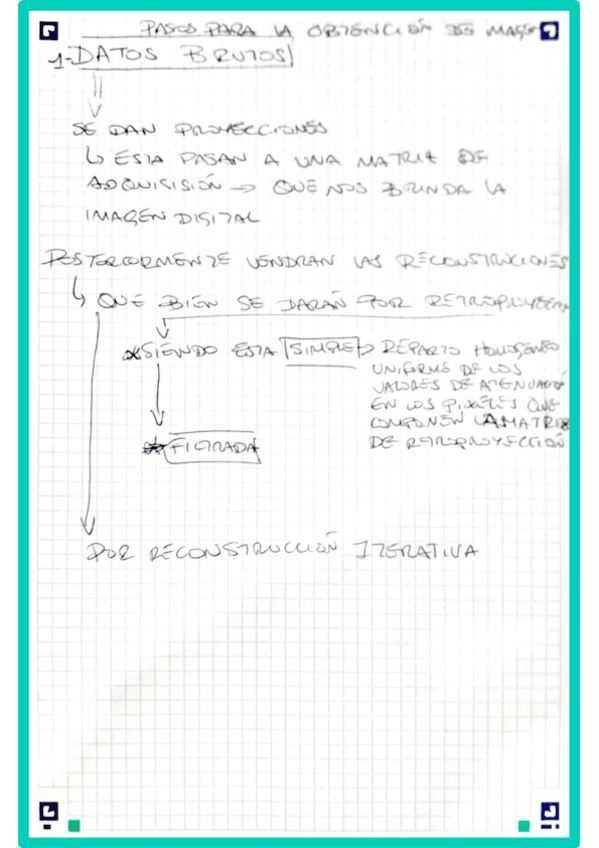 PASOS PARA LA OBTENCIÓN DE IMAGEN
1-DATOS BRUTOS
SE DAN PROYECCIONES
↳ ESTA PASAN A UNA MATRIZ DE
ADQUISISIÓN → QUE NOS BRINDA LA
IMAGEN DIGITAL
POSTERIORMENTE VENDRAN LAS RECONSTRUCIONES
↳ QUE BIEN SE DARÁN POR RETROPROYECCIÓN
*SIENDO ESTA SIMPLE → REPARTO HOMOGENEO
UNIFORME DE LOS
VALORES DE ATENUACIÓN
EN LOS PIXELES QUE
COMPONEN LA MATRIZ
DE RETROPROYECCIÓN
* FILTRADA
POR RECONSTRUCCIÓN ITERATIVA